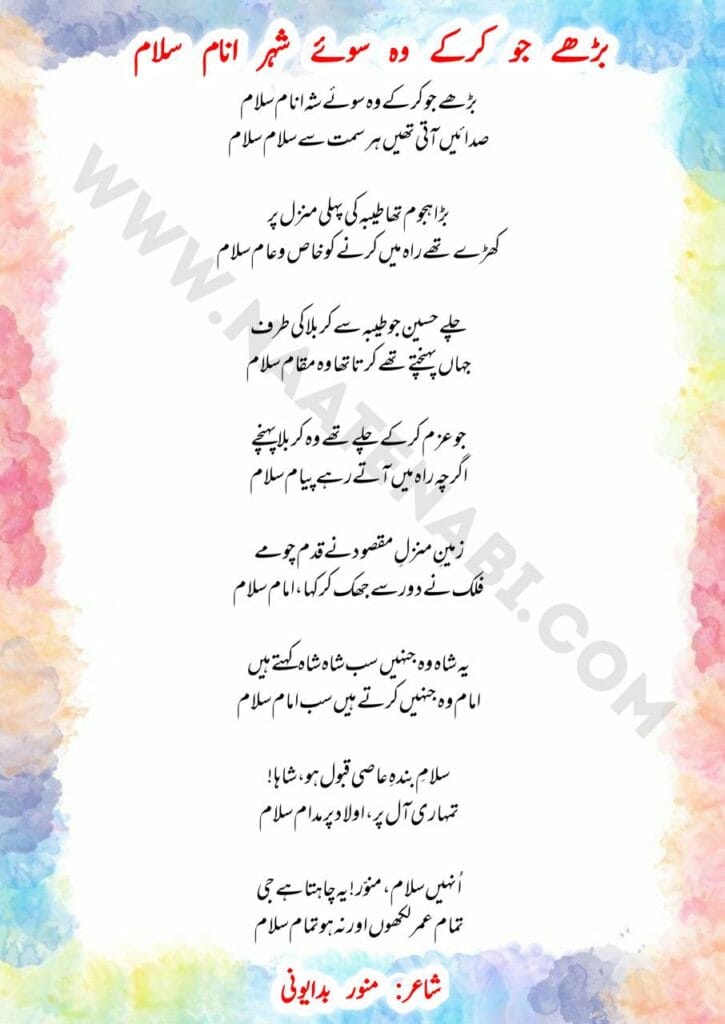 بڑھے جو کرکے وہ سوئے شہر انام سلام
بڑھے جو کر کے وہ سوئے شہ انام سلام
صدائیں آتی تھیں ہر سمت سے سلام سلام
بڑا ہجوم تھا طیبہ کی پہلی منزل پر
کھڑے تھے راہ میں کرنے کو خاص و عام سلام
چلے حسین جو طیبہ سے کربلا کی طرف
جہاں پہنچتے تھے کرتا تھا وہ مقام سلام
جو عزم کر کے چلے تھے وہ کربلا پہنچے
اگرچہ راہ میں آتے رہے پیام سلام
زمینِ منزلِ مقصود نے قدم چومے
فلک نے دور سے جھک کر کہا، امام سلام
یہ شاہ وہ جنہیں سب شاہ شاہ کہتے ہیں
امام وہ جنہیں کرتے ہیں سب امام سلام
سلامِ بندہِ عاصی قبول ہو، شاہا!
تمہاری آل پر، اولاد پر مدام سلام
اُنہیں سلام، منوّر! یہ چاہتا ہے جی
تمام عمر لکھوں اور نہ ہو تمام سلام
شاعر: منور بدایونی
WWW.NAATENABI.COM